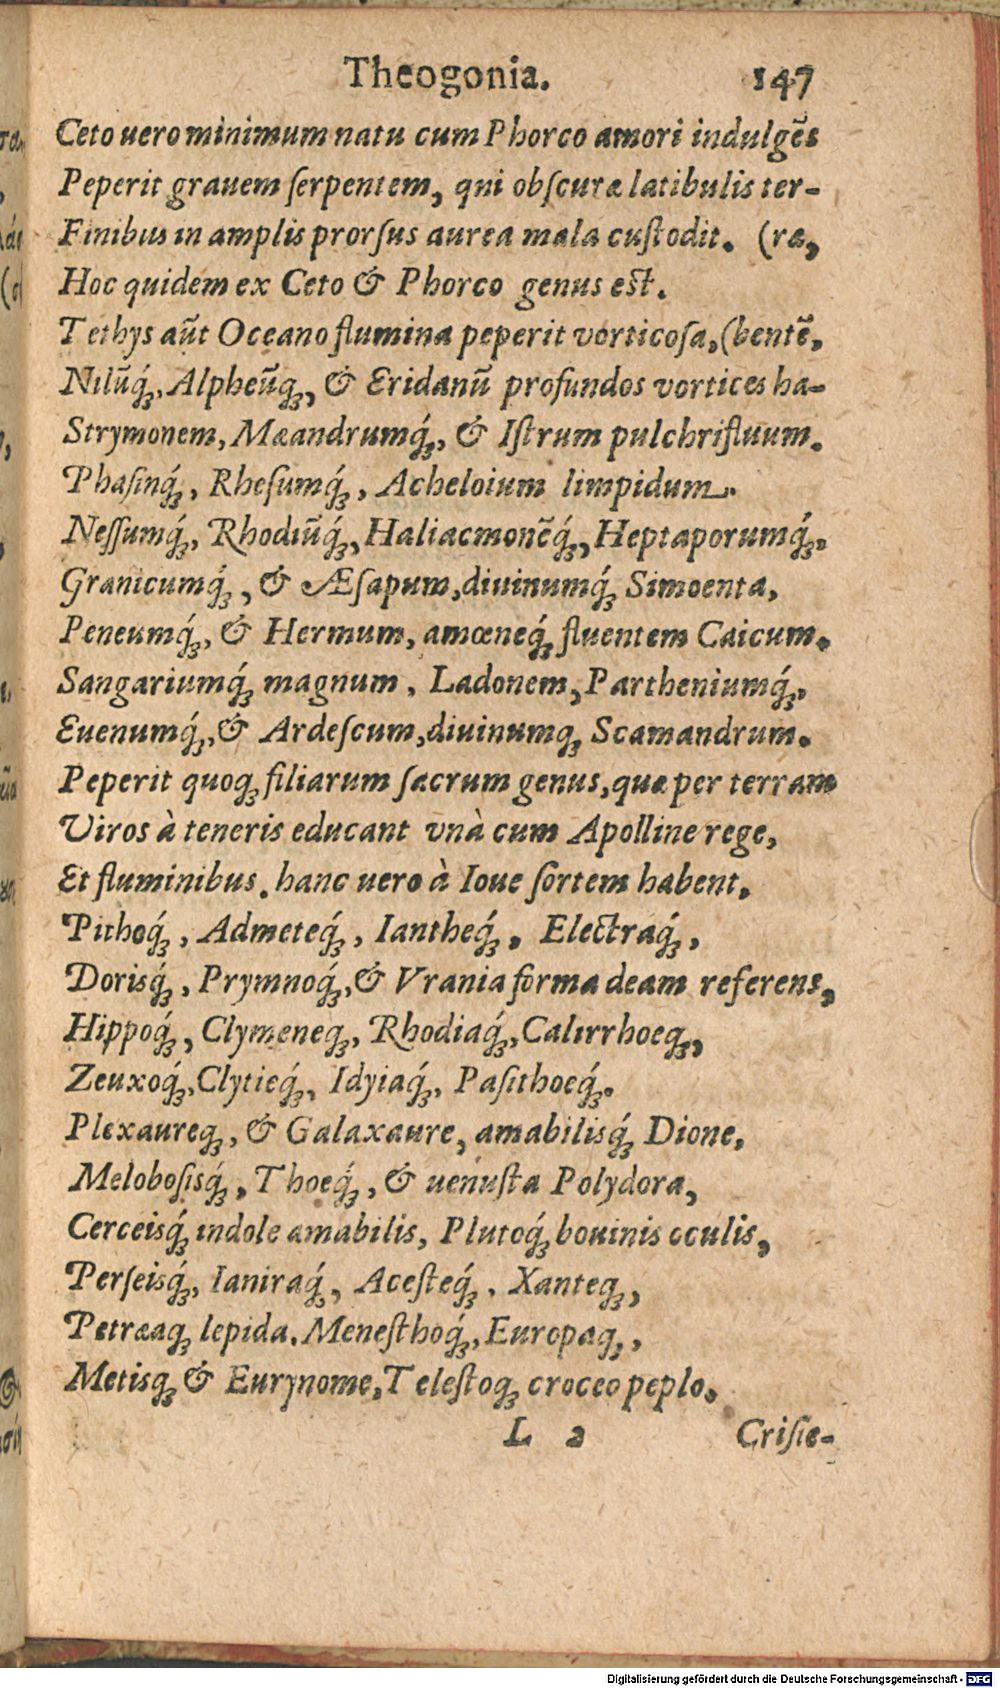 Theogonia. 147
Ceto uero minimum natu cum Phorco amori indulgēs
Peperit grauem ſerpentem, qui obſcuræ latibulis ter-
Finibus in amplis prorſus aurea mala cuſtodit. (ræ,
Hoc quidem ex Ceto & Phorco genus eſt.
Tethys aūt Oceano flumina peperit vorticoſa, (bentē,
Nilūq́ꝫ, Alpheūqꝫ, & Eridanū profundos vortices ha-
Strymonem, Mæandrumq́ꝫ, & Iſtrum pulchrifluum.
Phaſinq́ꝫ, Rheſumq́ꝫ, Acheloium limpidum.
Neſſumq́ꝫ, Rhodiūq́ꝫ, Haliacmonēq́ꝫ, Heptaporumq́ꝫ,
Granicumq́ꝫ, & Æſapum, diuinumq́ꝫ Simoenta,
Peneumq́ꝫ, & Hermum, amœneq́ꝫ fluentem Caicum.
Sangariumq́ꝫ magnum, Ladonem, Partheniumq́ꝫ,
Euenumq́ꝫ, & Ardeſcum, diuinumqꝫ Scamandrum.
Peperit quoqꝫ filiarum ſacrum genus, quæ per terram
Viros à teneris educant vnà cum Apolline rege,
Et fluminibus, hanc uero à Ioue ſortem habent,
Pithoq́ꝫ, Admeteq́ꝫ, Iantheq́ꝫ, Electraq́ꝫ,
Dorisq́ꝫ, Prymnoq́ꝫ, & Vrania forma deam referens,
Hippoq́ꝫ, Clymeneqꝫ, Rhodiaq́ꝫ, Calirrhoeqꝫ,
Zeuxoq́ꝫ, Clytieq́ꝫ, Idyiaq́ꝫ, Paſithoeq́ꝫ.
Plexaureqꝫ, & Galaxaure, amabilisq́ꝫ Dione,
Meloboſisq́ꝫ, Thoeq́ꝫ, & uenuſta Polydora,
Cerceisq́ꝫ indole amabilis, Plutoq́ꝫ bouinis oculis,
Perſeisq́ꝫ, Ianiraq́ꝫ, Aceſteq́ꝫ, Xanteqꝫ,
Petræaqꝫ lepida, Meneſthoq́ꝫ, Europaqꝫ,
Metisqꝫ & Eurynome, Teleſtoqꝫ croceo peplo.
L 2 Criſie-
Digitalisierung gefördert durch die Deutsche Forschungsgemeinschaft - DFG